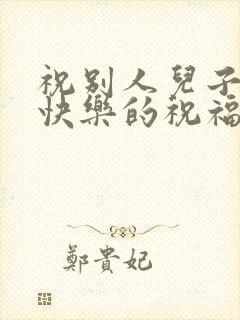 祝别人兒子
快樂的祝福
鄭貴妃